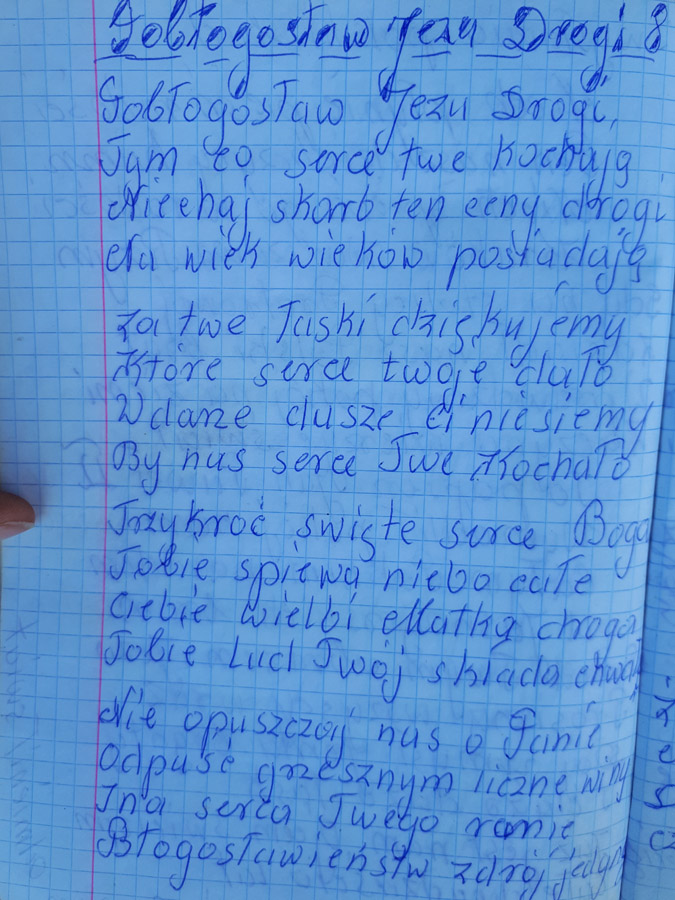 Pobłogosław Jezu Drogi 8
Pobłogosław Jezu Drogi,
Tym co serce twe Kochają
Niechaj skarb ten ceny drogi
Na wiek wieków posiadają
Za twe łaski dziękujemy
Które serce twoje dało
W darze dusze Ci niesiemy
By nas serce Twe Kochało
Trzykroć święte serce Boga
Tobie śpiewa niebo całe
Ciebie wielbi Matka droga
Tobie Lud Twój składa chwałę
Nie opuszczaj nas o Panie
Odpuść grzesznym liczne winy
I na serca Twego ranie
Błogosławieństw zdrój jedyny